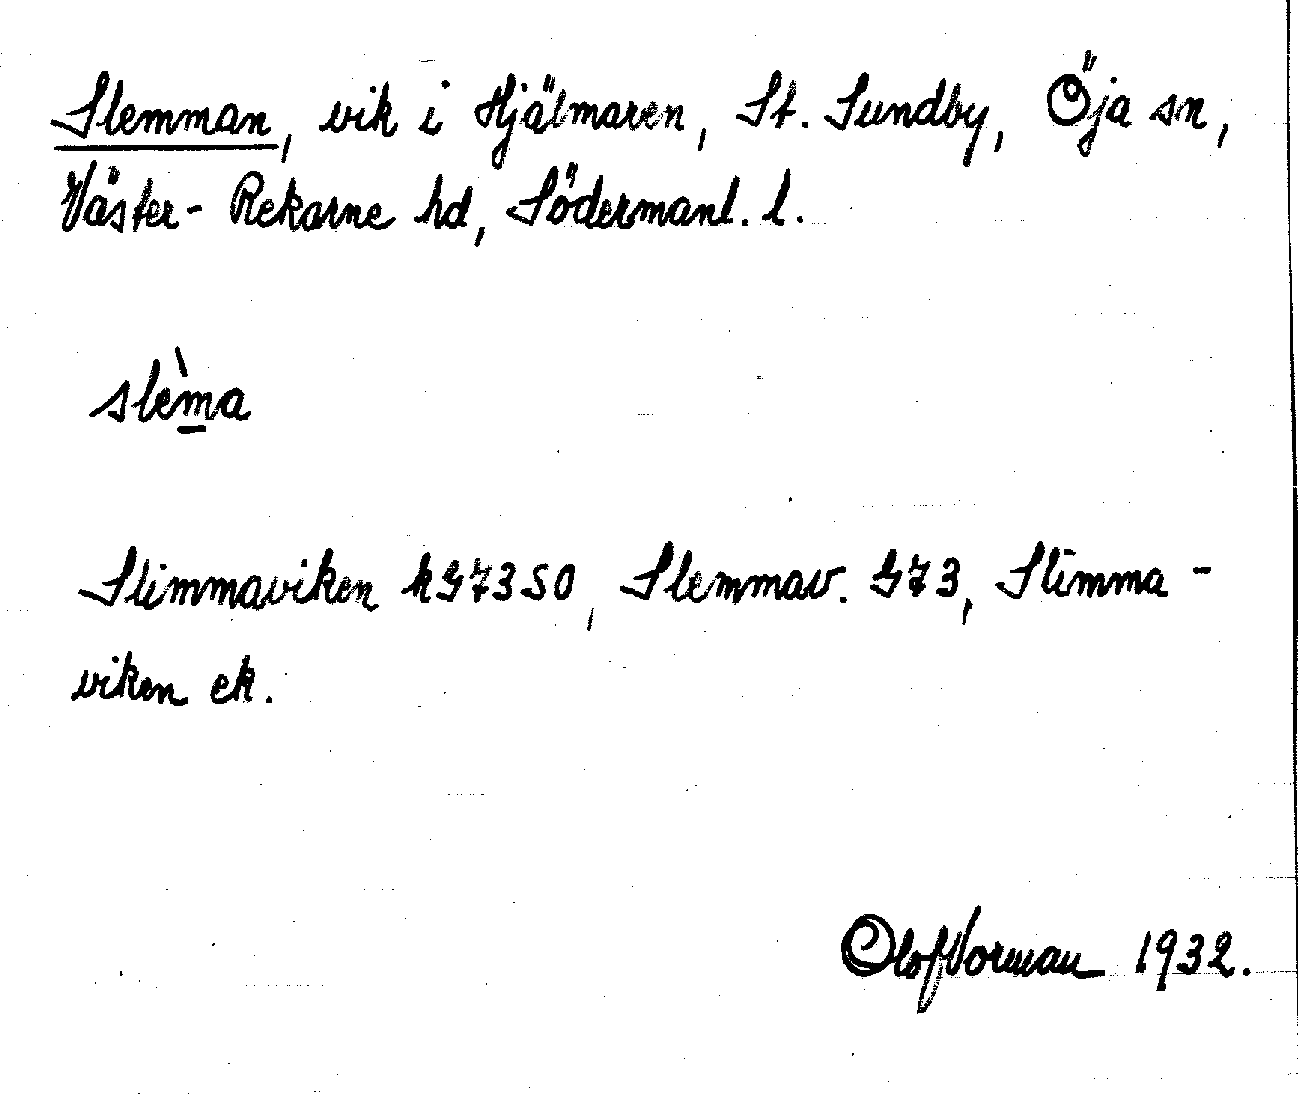 Slemman, vik i Hjälmaren, St. Sundby, Öja sn,
Väster-Rekarne hd, Södermanl. l.
slèm̲a
Slimmaviken kG7350, Slemmav. G73, Slimma-
viken ek.
Olof Vorman 1932.